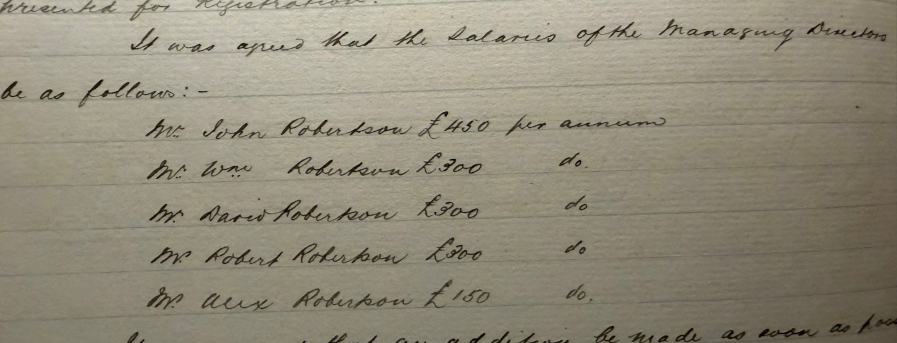 presented for Registration.
It was agreed that the Salaries of the Managing Directors
be as follows:-
Mr. John Robertson £450 per annum
Mr. Wm. Robertson £300 do.
Mr. David Robertson £300 do
Mr. Robert Robertson £300 do
Mr. Alex Robertson £150 do.
that an addition be made as soon as